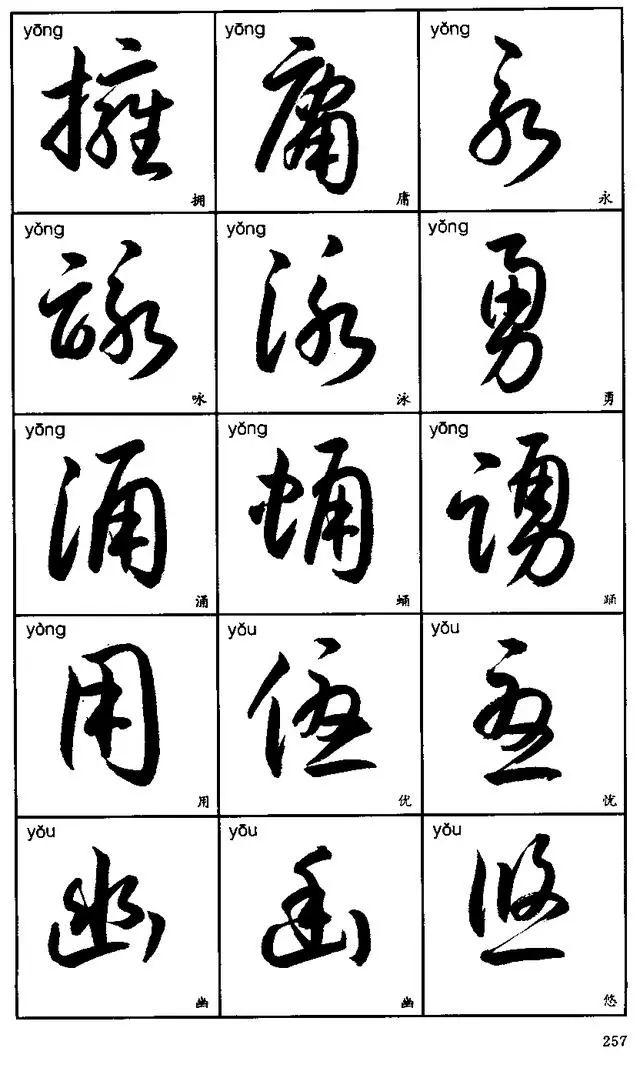 yōng yōng yǒng
擁 庸 永
拥 庸 永
yǒng yǒng yǒng
詠 泳 勇
咏 泳 勇
yǒng yǒng yǒng
涌 蛹 踴
涌 蛹 踊
yòng yōu yōu
用 優 憂
用 优 忧
yōu yōu yōu
幽 幽 悠
幽 幽 悠
257